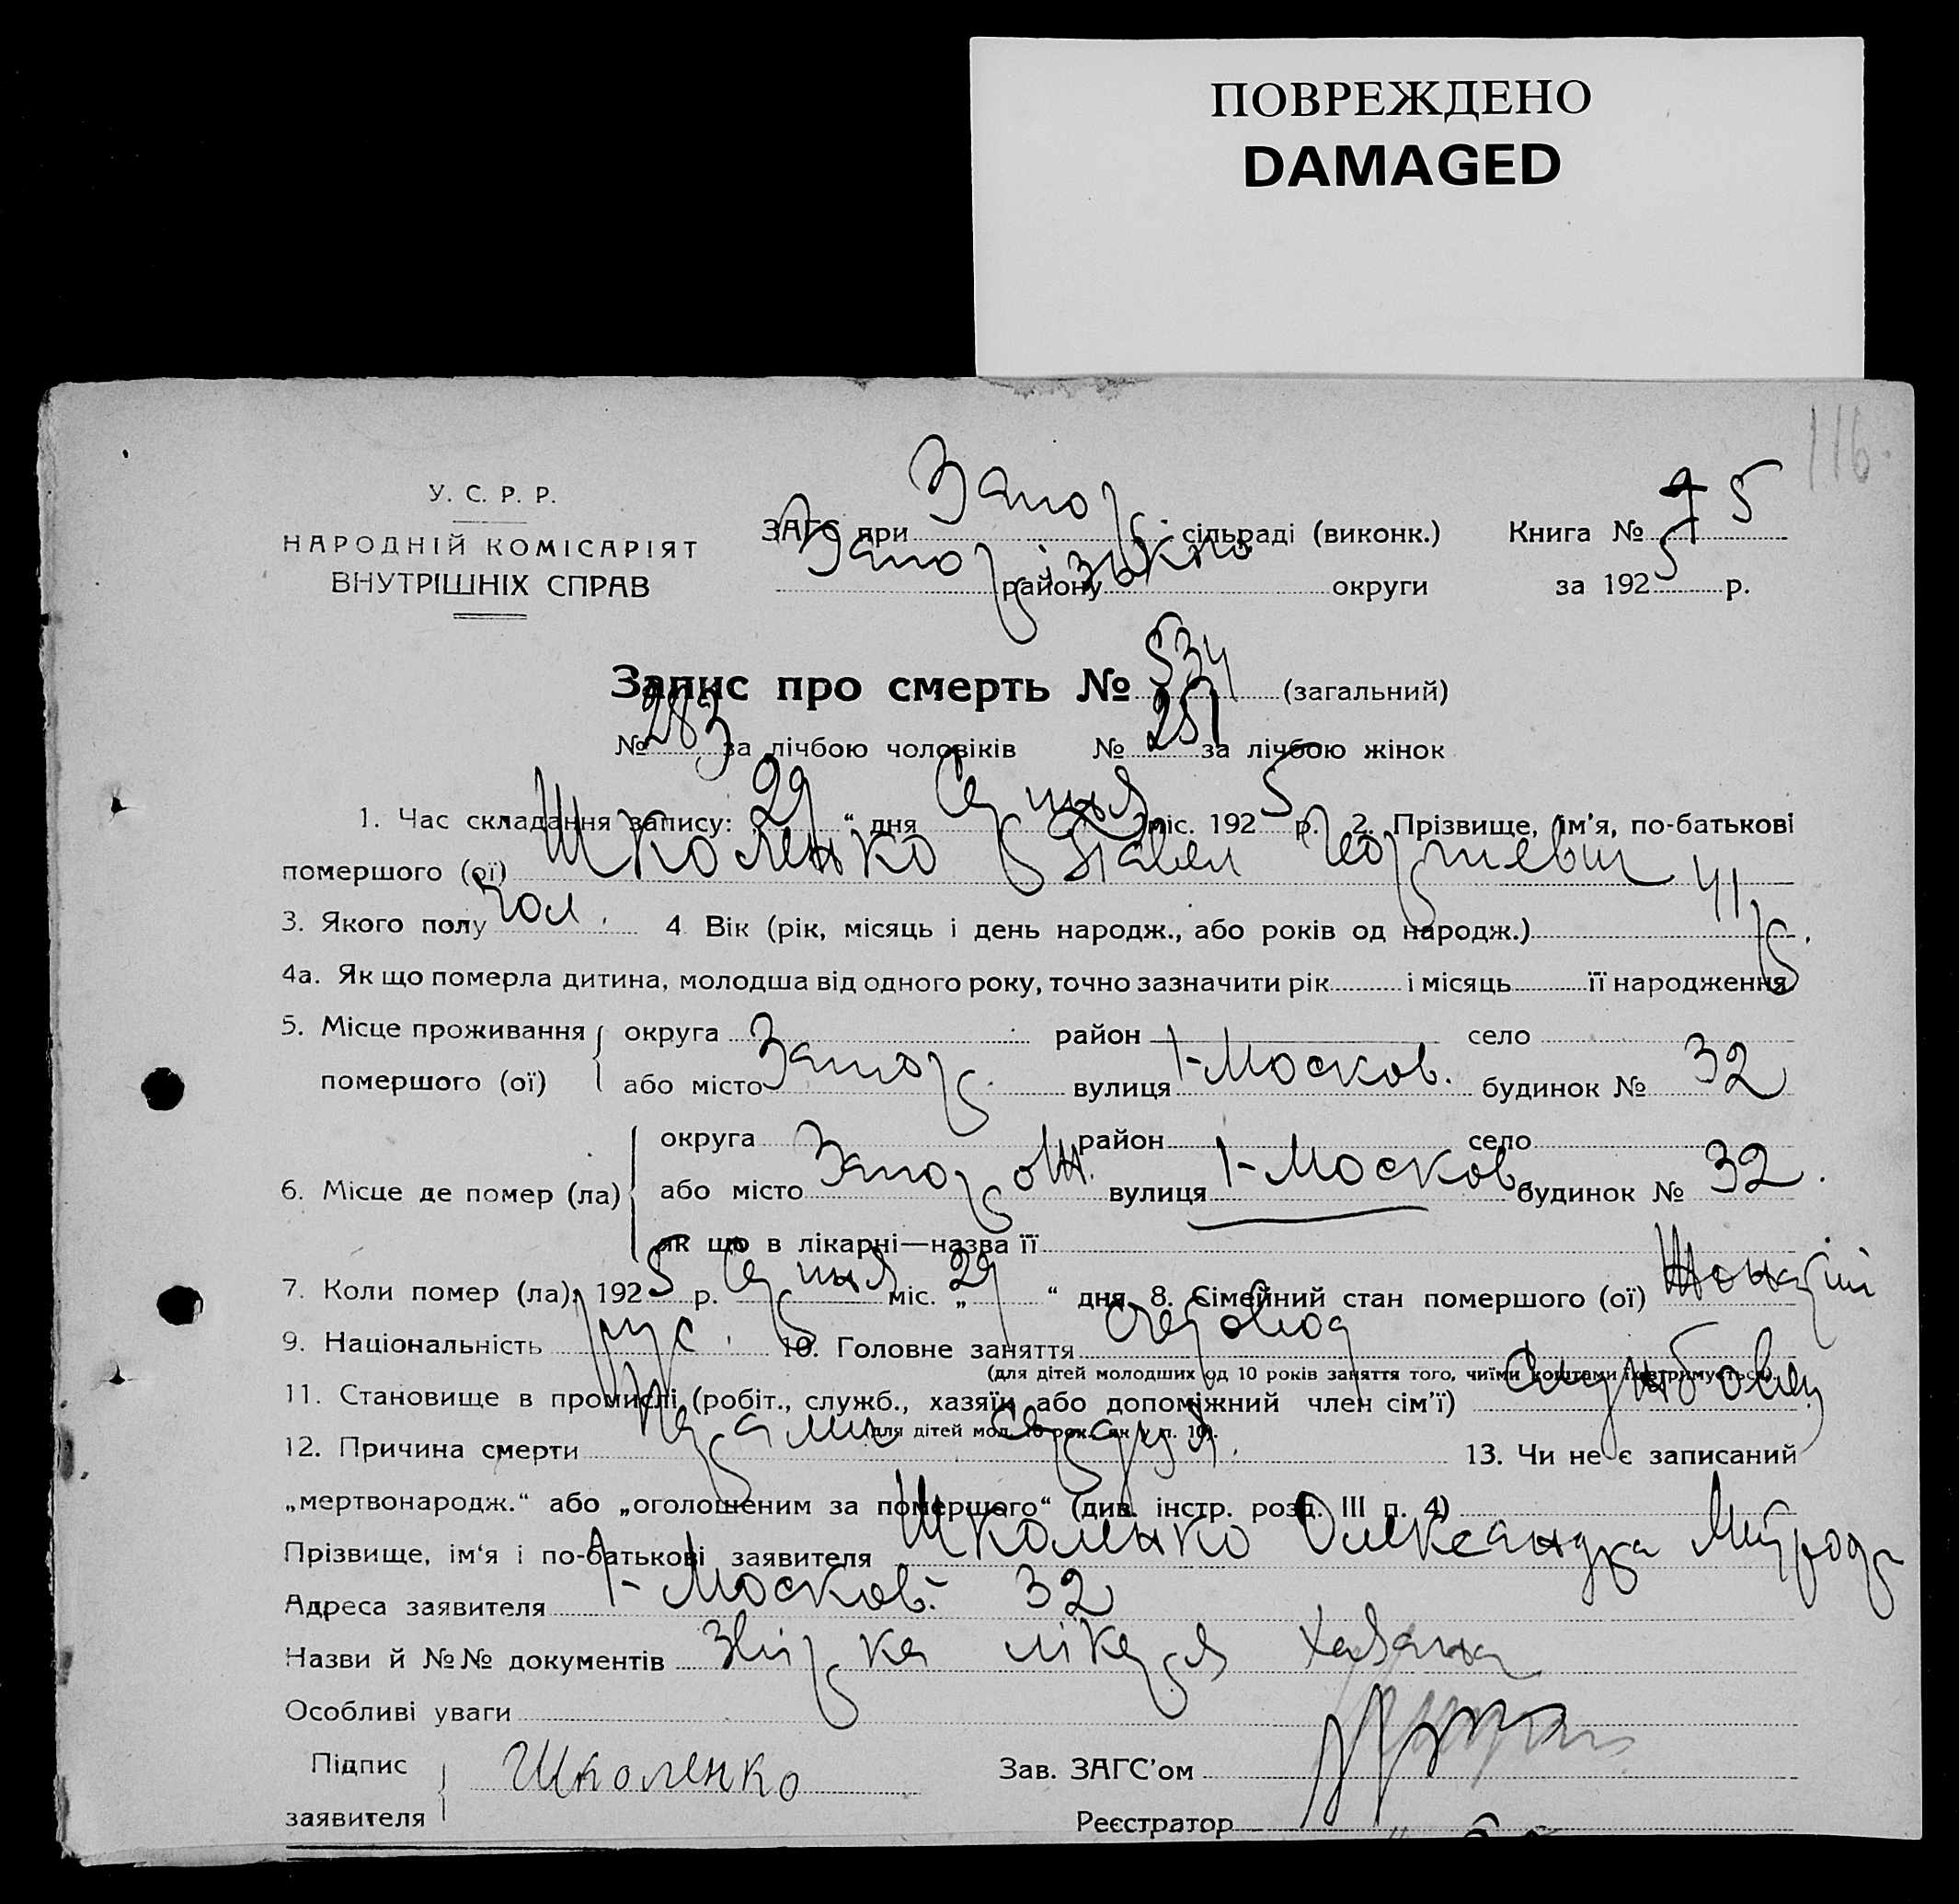 ПОВРЕЖДЕНО
DAMAGED
116.
У. С. Р. Р.
НАРОДНІЙ КОМІСАРІЯТ
ВНУТРІШНІХ СПРАВ
ЗАГС при Запор. сільраді (виконк.) Книга № 5
Запорізько району округи за 1925 р.
Запис про смерть № 534 (загальний)
№ 283 за лічбою чоловіків № 251 за лічбою жінок
1. Час складання запису: „29“ дня Серпня міс. 1925 р. 2. Прізвище, ім'я, по-батькові
помершого (ої) Школенко Павел Георгиевич
3. Якого полу Чол. 4 Вік (рік, місяць і день народж., або років од народж.) 41 р.
4а. Як що померла дитина, молодша від одного року, точно зазначити рік і місяць її народження.
5. Місце проживання округа район село
помершого (ої) або місто Запор. вулиця 1-Москов. будинок № 32
округа район село
6. Місце де помер (ла) або місто Запоріж. вулиця 1-Москов. будинок № 32.
як що в лікарні—назва її
7. Коли помер (ла): 1925 р. Серпня міс. „29“ дня. 8. Сімейний стан помершого (ої) Жонатий
9. Національність рус. 10. Головне заняття счетовод
(для дітей молодших од 10 років заняття того, чиїми коштами їх утримується).
11. Становище в промислі (робіт., служб., хазяїн або допоміжний член сім'ї) Службовец
(для дітей мол. 10 рок. як у п. 10).
12. Причина смерти 13. Чи не є записаний
„мертвонародж.“ або „оголошеним за помершого“ (див. інстр. розд. III п. 4)
Прізвище, ім'я і по-батькові заявителя Школенко Олександра Митрофа
Адреса заявителя 1-Москов. 32
Назви й №№ документів лікаря Хазана
Особливі уваги
Підпис Школенко Зав. ЗАГС'ом
заявителя Реєстратор